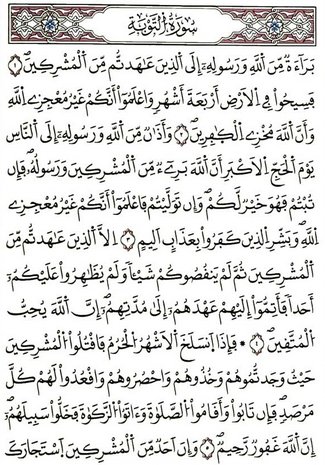 سُورَةُ التَّوْبَةِ
بَرَآءَةٌ مِّنَ ٱللَّهِ وَرَسُولِهِۦٓ إِلَى ٱلَّذِينَ عَٰهَدتُّم مِّنَ ٱلْمُشْرِكِينَ ١
فَسِيحُوا۟ فِى ٱلْأَرْضِ أَرْبَعَةَ أَشْهُرٍ وَٱعْلَمُوٓا۟ أَنَّكُمْ غَيْرُ مُعْجِزِى ٱللَّهِ
وَأَنَّ ٱللَّهَ مُخْزِى ٱلْكَٰفِرِينَ ٢ وَأَذَٰنٌ مِّنَ ٱللَّهِ وَرَسُولِهِۦٓ إِلَى ٱلنَّاسِ
يَوْمَ ٱلْحَجِّ ٱلْأَكْبَرِ أَنَّ ٱللَّهَ بَرِىٓءٌ مِّنَ ٱلْمُشْرِكِينَ وَرَسُولُهُۥ فَإِن
تُبْتُمْ فَهُوَ خَيْرٌ لَّكُمْ وَإِن تَوَلَّيْتُمْ فَٱعْلَمُوٓا۟ أَنَّكُمْ غَيْرُ مُعْجِزِى
ٱللَّهِ وَبَشِّرِ ٱلَّذِينَ كَفَرُوا۟ بِعَذَابٍ أَلِيمٍ ٣ إِلَّا ٱلَّذِينَ عَٰهَدتُّم مِّنَ
ٱلْمُشْرِكِينَ ثُمَّ لَمْ يَنقُصُوكُمْ شَيْـًٔا وَلَمْ يُظَٰهِرُوا۟ عَلَيْكُمْ
أَحَدًا فَأَتِمُّوٓا۟ إِلَيْهِمْ عَهْدَهُمْ إِلَىٰ مُدَّتِهِمْ إِنَّ ٱللَّهَ يُحِبُّ
ٱلْمُتَّقِينَ ٤ فَإِذَا ٱنسَلَخَ ٱلْأَشْهُرُ ٱلْحُرُمُ فَٱقْتُلُوا۟ ٱلْمُشْرِكِينَ
حَيْثُ وَجَدتُّمُوهُمْ وَخُذُوهُمْ وَٱحْصُرُوهُمْ وَٱقْعُدُوا۟ لَهُمْ كُلَّ
مَرْصَدٍ فَإِن تَابُوا۟ وَأَقَامُوا۟ ٱلصَّلَوٰةَ وَءَاتَوُا۟ ٱلزَّكَوٰةَ فَخَلُّوا۟ سَبِيلَهُمْ
إِنَّ ٱللَّهَ غَفُورٌ رَّحِيمٌ ٥ وَإِنْ أَحَدٌ مِّنَ ٱلْمُشْرِكِينَ ٱسْتَجَارَكَ